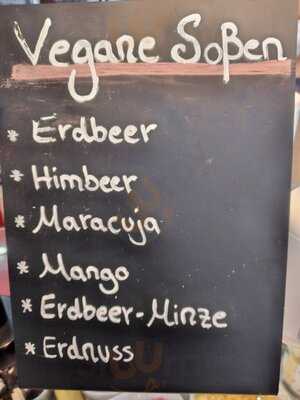 Vegane Soßen
* Erdbeer
* Himbeer
* Maracuja
* Mango
* Erdbeer-Minze
* Erdnuss